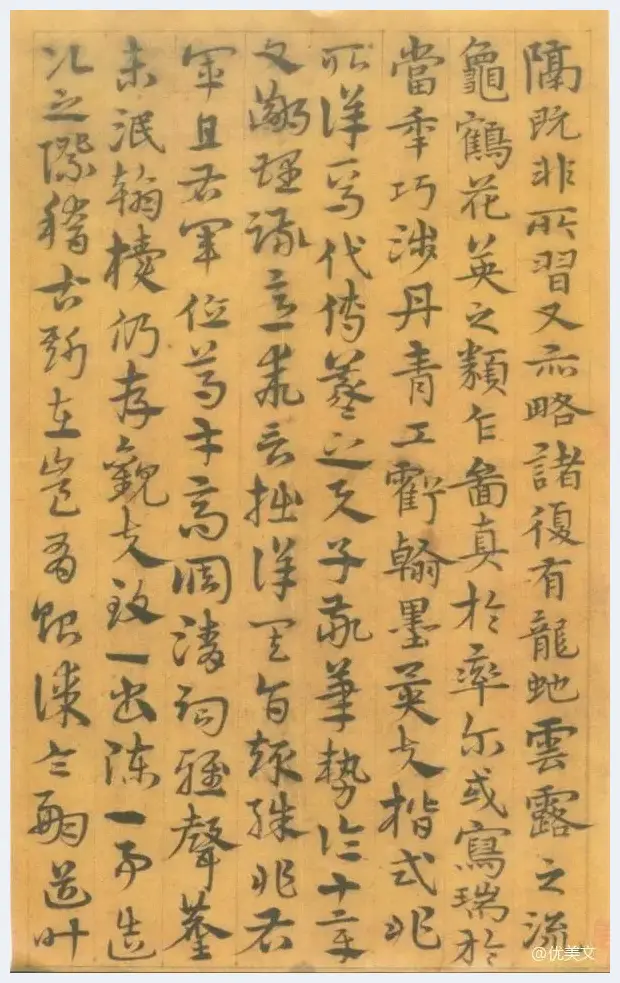 隔既非所習又亦略諸復有龍虵雲露之流
龜鶴花英之類乍圖真於率尔或寫瑞於
當年巧涉丹青工虧翰墨異夫楷式非
所詳焉代傳羲之与子敬筆勢論十章
文鄙理疎意乖言拙詳其旨趣殊非右
軍且右軍位重才高調清詞雅聲塵
未泯翰櫝仍存觀夫致一書陳一事造
次之際稽古斯在豈有貽謀令嗣道叶
@优美文